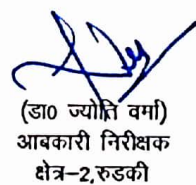 (डा० ज्योति वर्मा)
आबकारी निरीक्षक
क्षेत्र-2,रुडकी